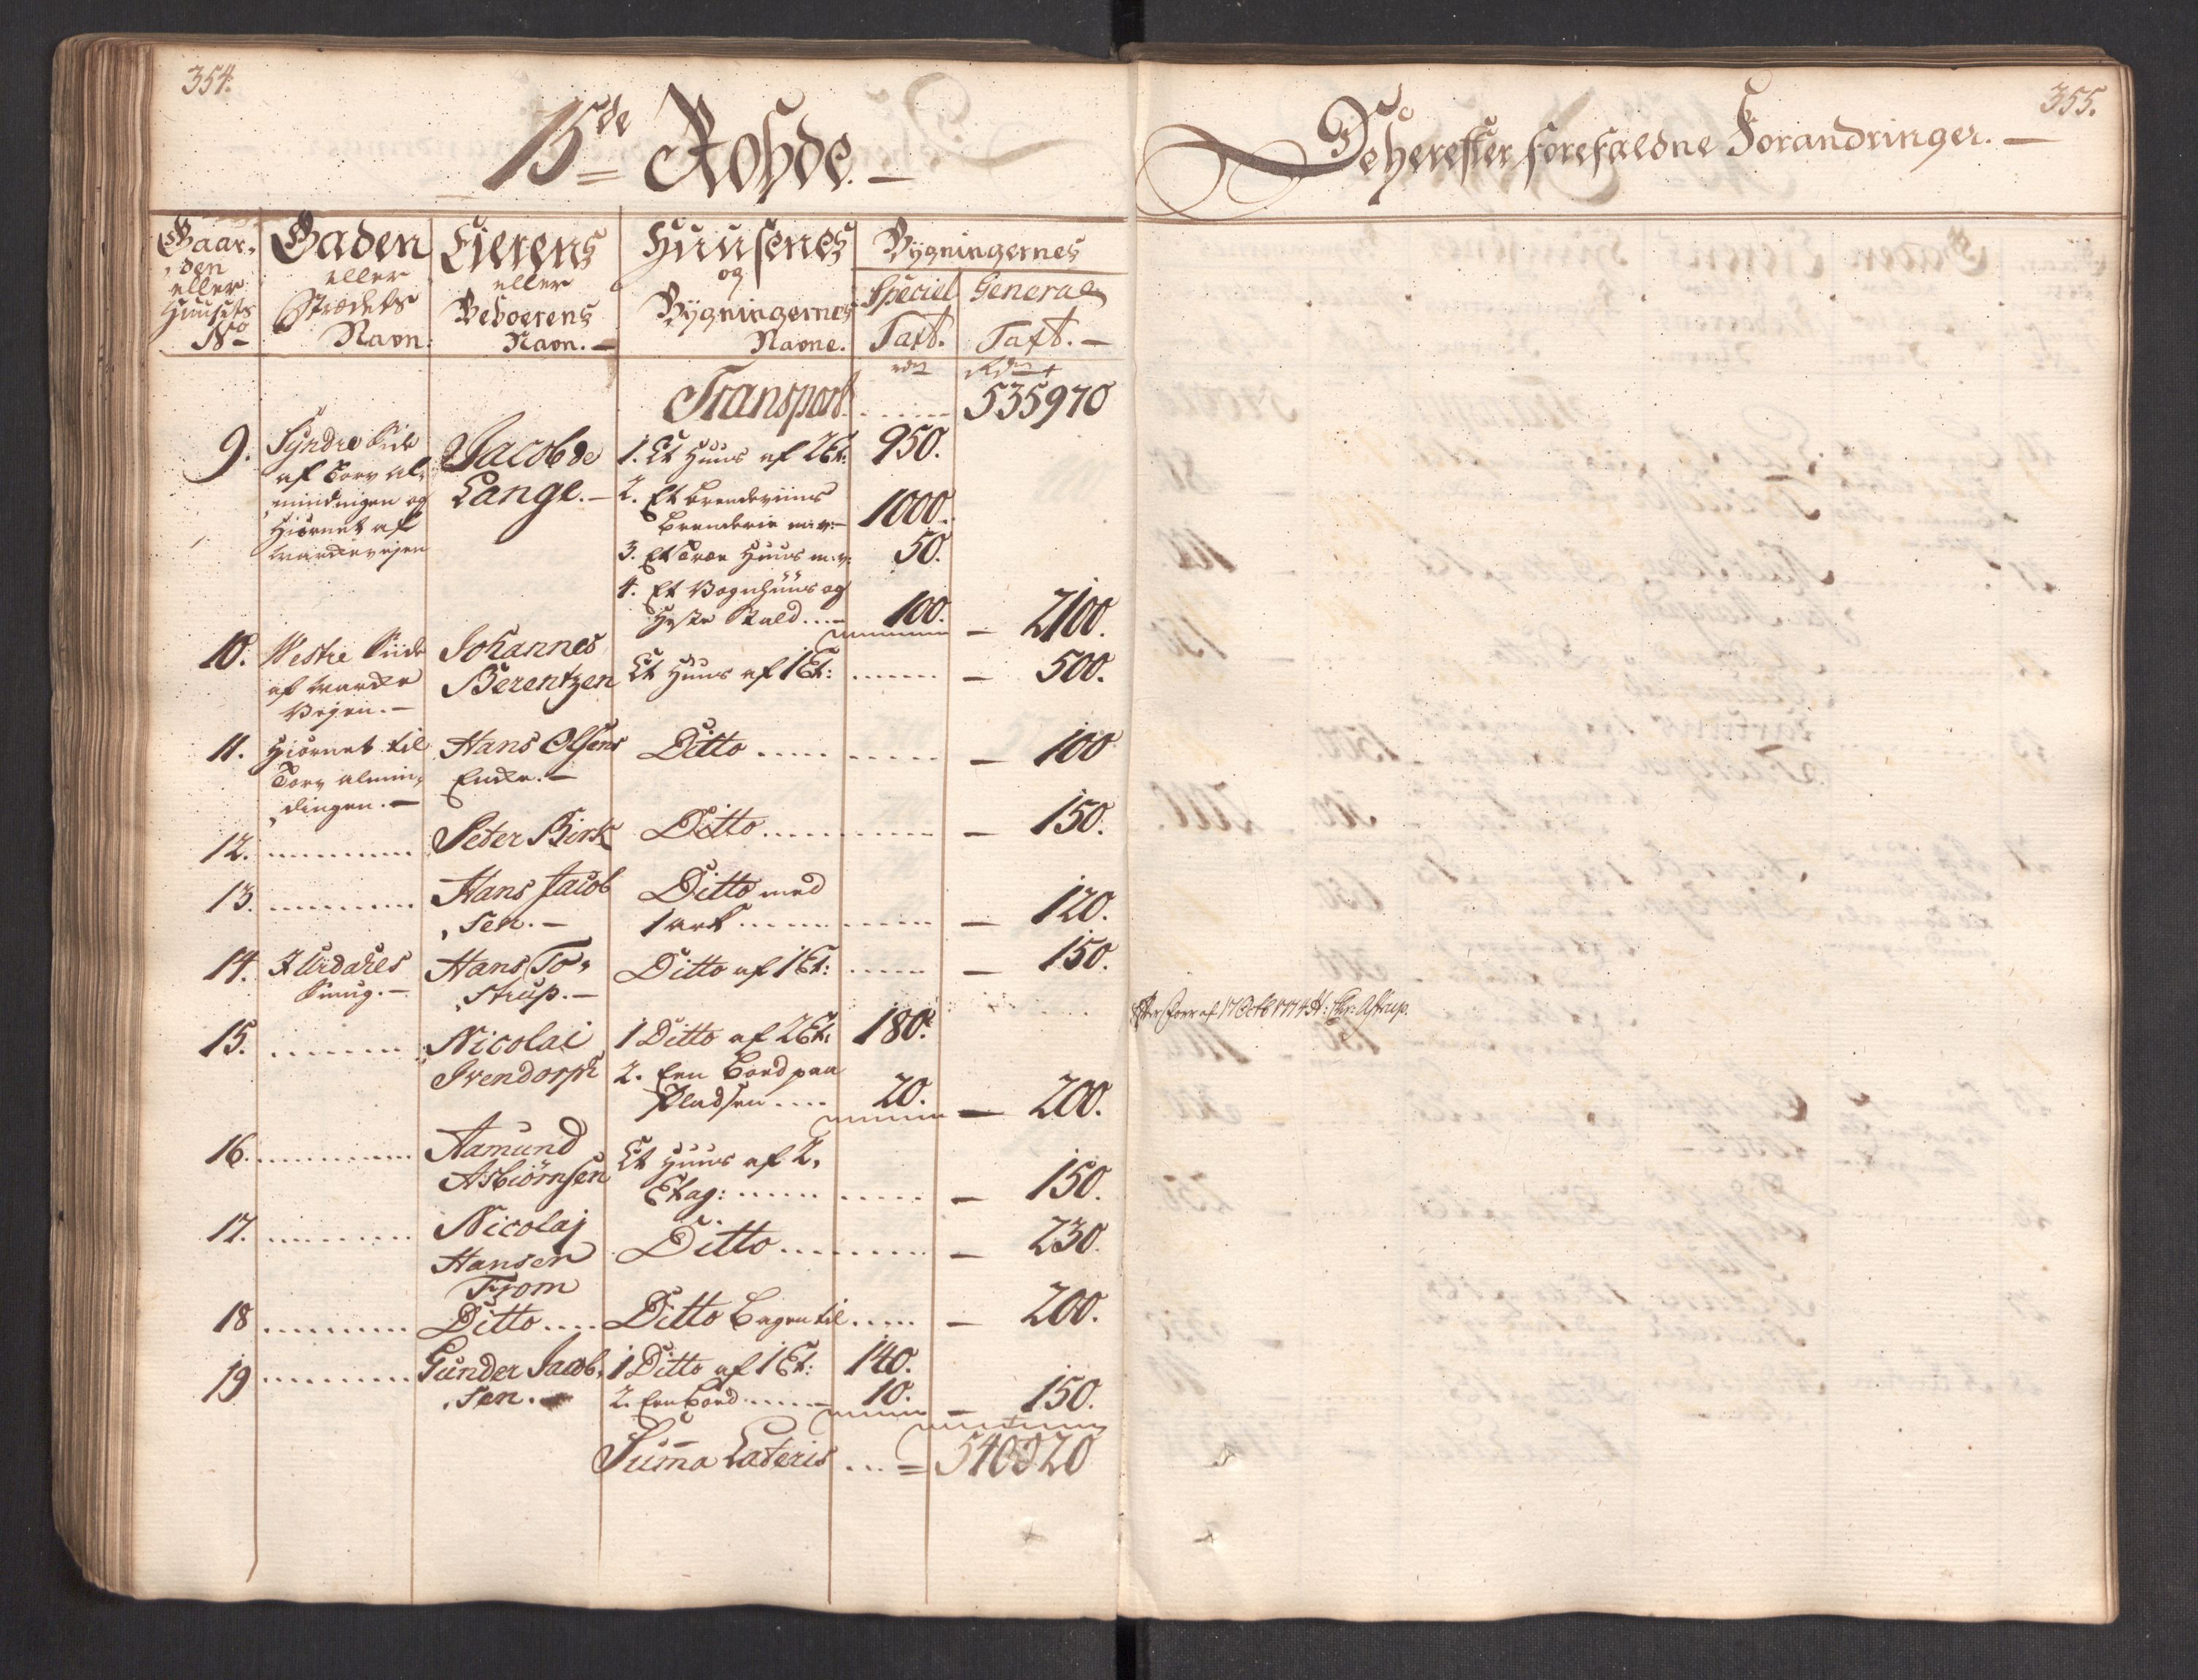 354.
15de Rohde.
Gaar-
den
eller
Huusets
No
Gaden
eller
Strædets
Navn.
Eierens
eller
Beboerens
Navn.
Huusenes
og
Bygningernes
Navne.
Bygningernes
Speciel
Taxt.
General
Taxt.
rdr
Rdr
Transport 535970
9. Syndre Side
af Torv al-
mindingen og
Hiørnet af
Jacob de
Lange.
1. Et Huus af 2 Et: 950.
2. Et Brendeviins
Brenderie m: v: 1000.
3. Et Træe Huus m: v: 50.
4. Et Vognhuus og
Heste Stald 100. 2100.
10. Westre Side
af
Veyen.
Johannes
Berentzen
Et Huus af 1 Et: 500.
11. Hiørnet til
Torv almin-
dingen.
Hans Olsens
Enke.
Ditto 100
12. Peter Birk Ditto 150.
13. Hans Jacob
sen.
Ditto med
1 ark 120.
14.
Smug.
Hans To-
strup.
Ditto af 1 Et: 150.
15. Nicolai
Ivendorph
1 Ditto af 2 Et: 180.
2. Een Boed paa
Pladsen 20. 200.
16. Aamund
Asbiörnsen
Et Huus af 2,
Etag: 150.
17. Nicolaj
Hansen
From
Ditto 230.
18 Ditto Ditto bagen til 200.
19 Gunder Jacob,
sen.
1 Ditto af 1 Et: 140.
2. Een Boed 10. 150.
Suma Lateris 540020
355.
De herefter forefaldne Forandringer.
af 17 Octb 1774